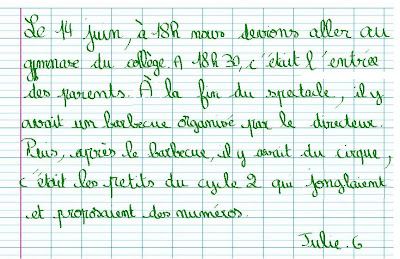 Le 14 juin, à 18h nous devions aller au
gymnase du collège. A 18h30, c'était l'entrée
des parents. À la fin du spectacle, il y
avait un barbecue organisé par le directeur.
Puis, après le barbecue, il y avait du cirque,
c'était les petits du cycle 2 qui jonglaient
et proposaient des numéros.
Julie. G